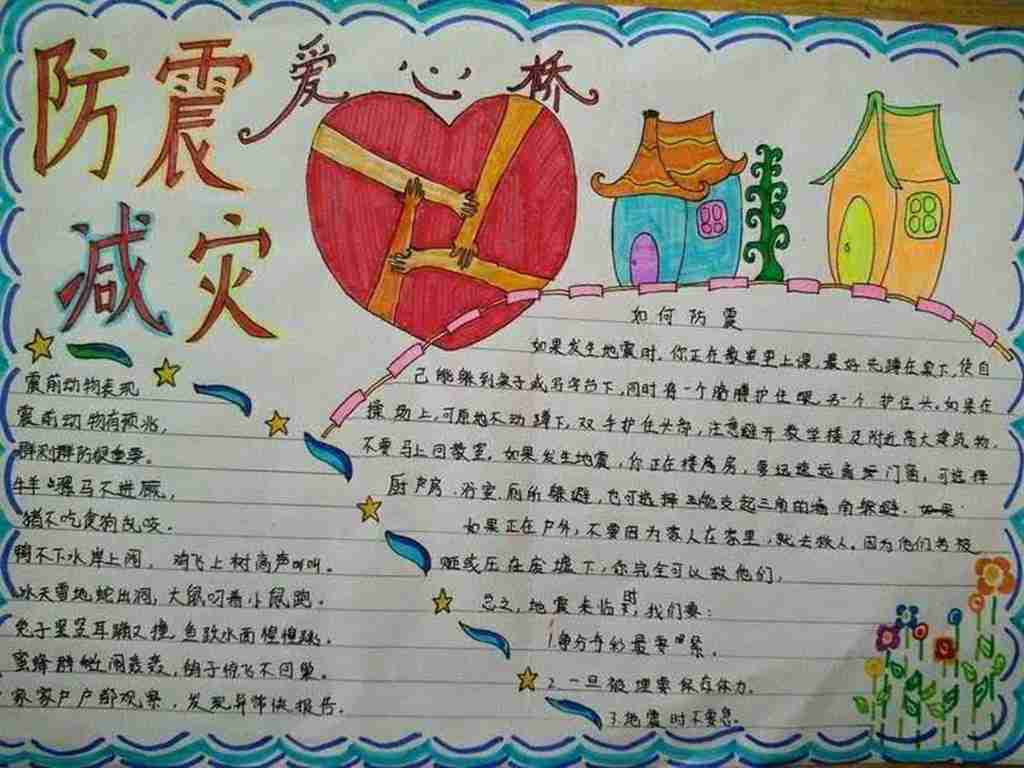 防震
减灾
爱心桥
震前动物表现
震前动物有预兆,
群测群防很重要。
牛羊骡马不进厩,
猪不吃食狗乱咬。
鸭不下水岸上闹, 鸡飞上树高声叫叫。
冰天雪地蛇出洞,大鼠叼着小鼠跑。
兔子竖竖耳蹦又撞,鱼跃水面惶惶跳。
蜜蜂群蜓闹轰轰,鸽子惊飞不回巢。
家家户户都观察,发现异常快报告。
如何防震
如果发生地震时,你正在教室里上课,最好先蹲在桌下,使自
己能躲到桌子或写字台下,同时用一个胳膊护住眼,另一个护住头。如果在
操场上,可原地不动蹲下,双手护住头部,注意避开教学楼及附近高大建筑物。
不要马上回教室。如果发生地震,你正在楼房,要迅速远离门窗,可选择
厨房、浴室、厕所躲避,也可选择能支起三角的墙角躲避。
如果正在户外,不要因为家人在家里,就去救人。因为他们若被
砸或压在废墟下,你完全可以救他们。
总之,地震来临时,我们要:
1.争分夺秒最要紧。
2.一旦被埋要保存体力。
3.地震时不要急。